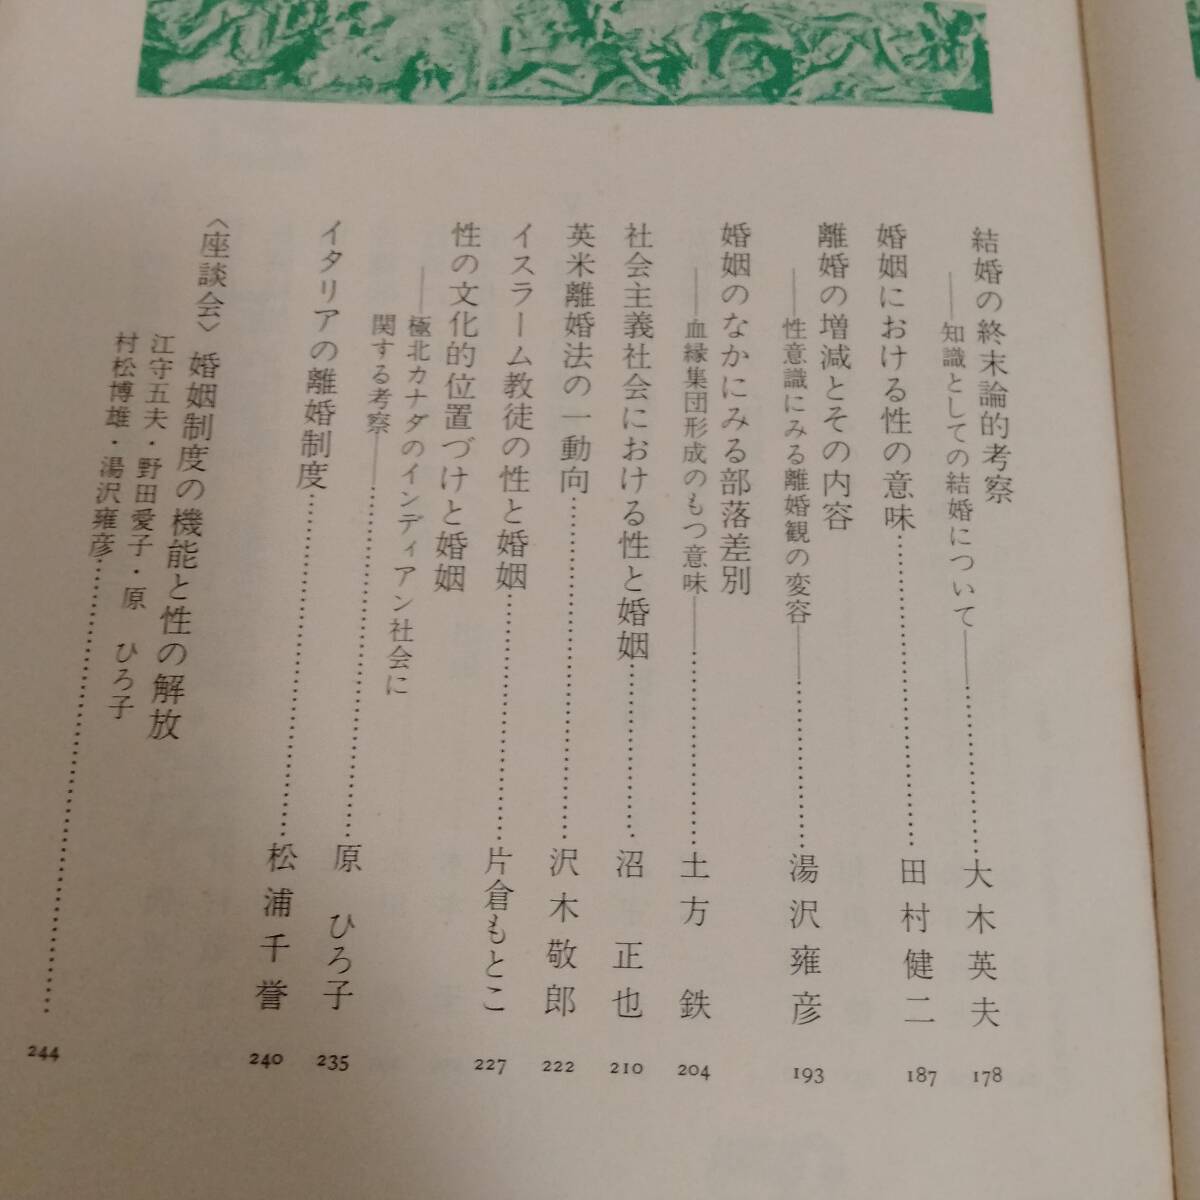 結婚の終末論的考察
――知識としての結婚について――…………大木英夫 178
婚姻における性の意味…………田村健二 187
離婚の増減とその内容
――性意識にみる離婚観の変容――…………湯沢雍彦 193
婚姻のなかにみる部落差別
――血縁集団形成のもつ意味――…………土方 鉄 204
社会主義社会における性と婚姻…………沼 正也 210
英米離婚法の一動向…………沢木敬郎 222
イスラーム教徒の性と婚姻…………片倉もとこ 227
性の文化的位置づけと婚姻
――極北カナダのインディアン社会に
関する考察――…………原 ひろ子 235
イタリアの離婚制度…………松浦千誉 240
〈座談会〉婚姻制度の機能と性の解放
江守五夫・野田愛子・原 ひろ子
村松博雄・湯沢雍彦………… 244